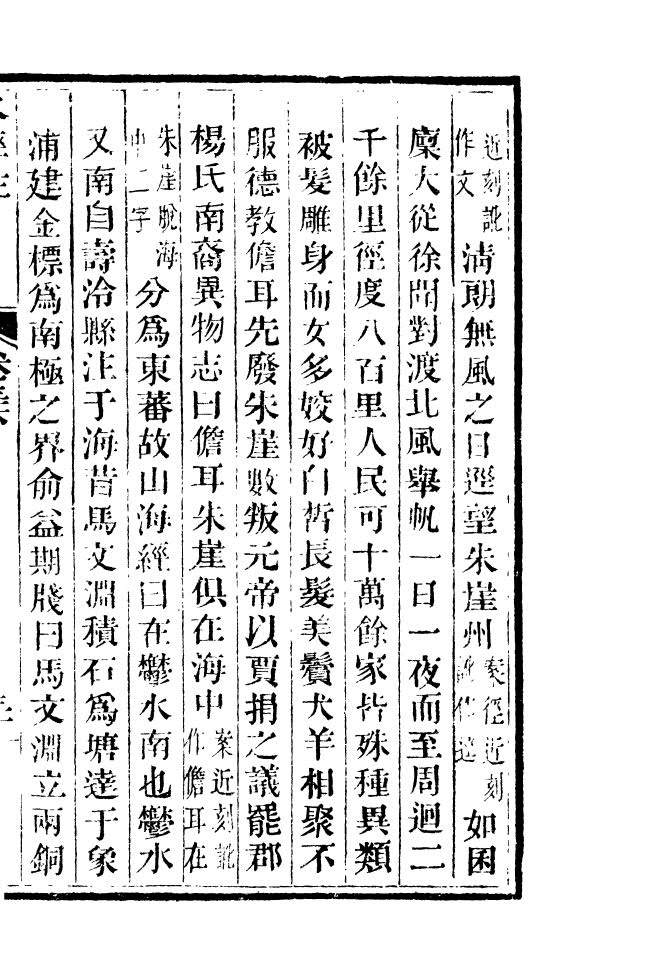 近刻訛作文清朗無風之日逕望朱崖州案徑近刻訛作遥如囷
廩大從徐聞對渡北風舉帆一日一夜而至周迴二
千餘里徑度八百里人民可十萬餘家皆殊種異類
被髮雕身而女多姣好白皙長髮美鬢犬羊相聚不
服德教儋耳先廢朱崖數叛元帝以賈捐之議罷郡
楊氏南裔異物志曰儋耳朱崖俱在海中案近刻訛作儋耳在
朱崖脫海中二字分爲東蕃故山海經曰在鬱水南也鬱水
又南自壽泠縣注于海昔馬文淵積石爲塘達于象
浦建金標爲南極之界俞益期牋曰馬文淵立兩銅